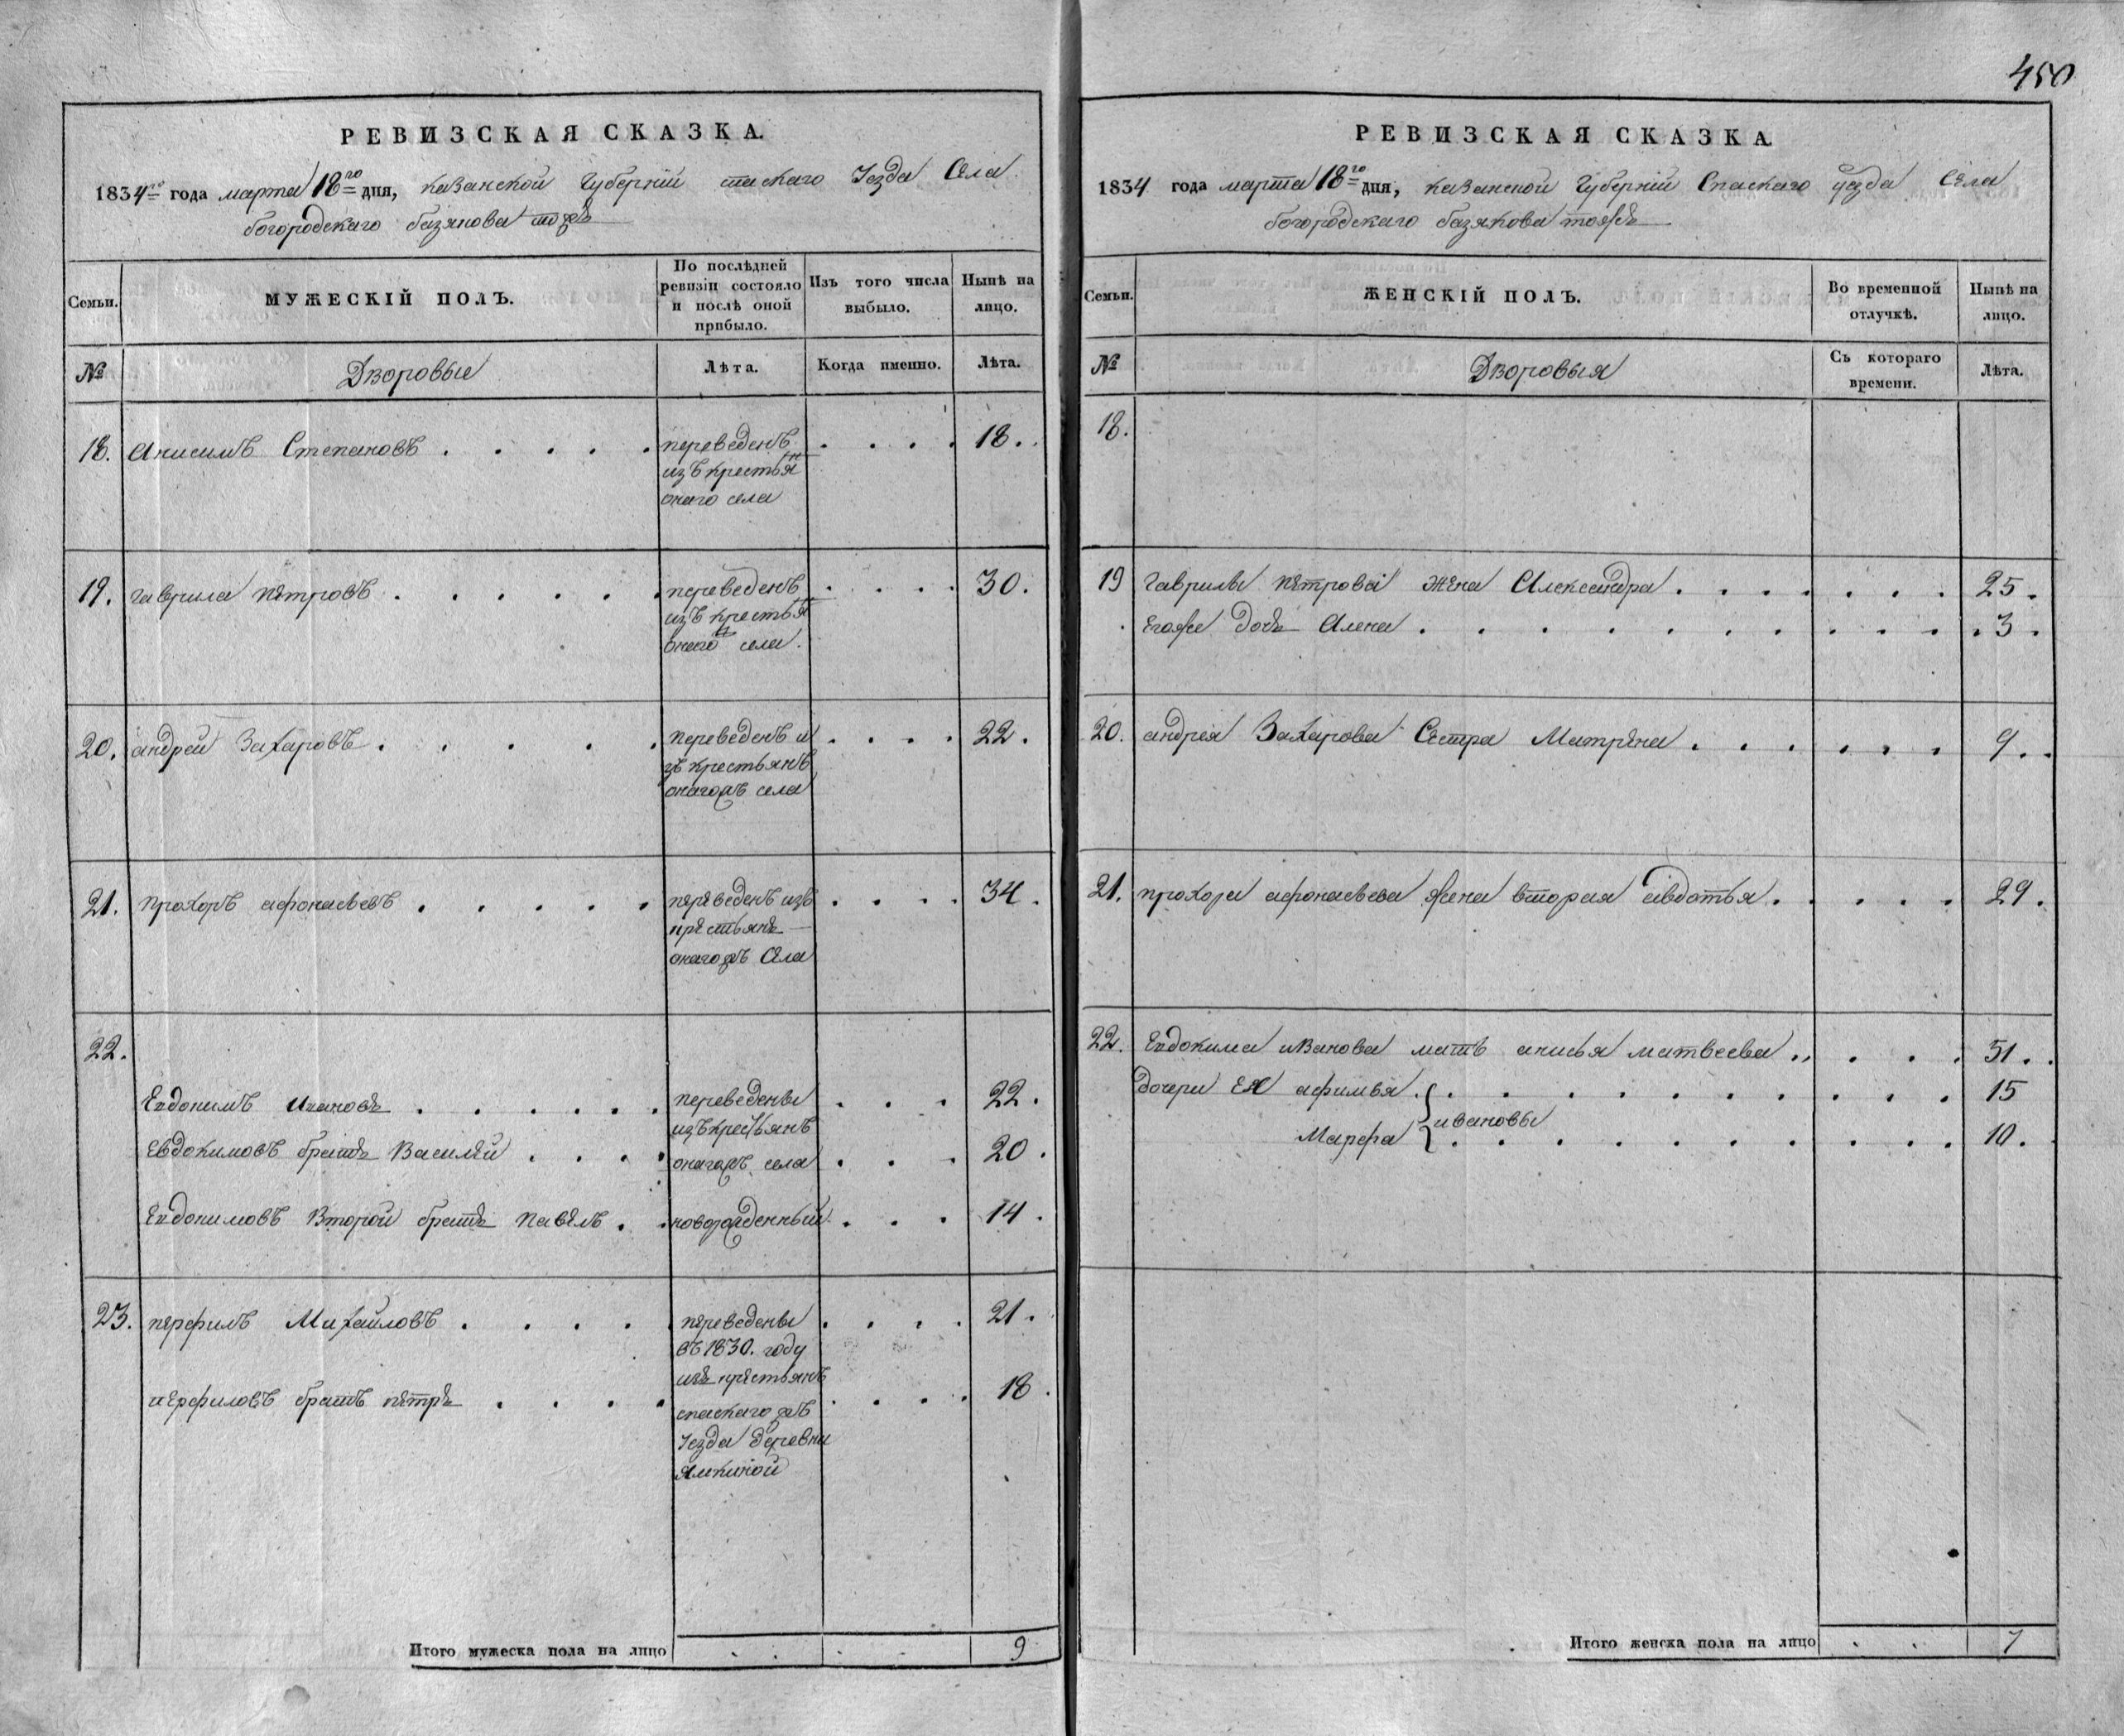 450
РЕВИЗСКАЯ СКАЗКА.
1834го года марта 18го дня, казанской Губерніи спаскаго Уезда Села
богородскаго базякова тожъ
Семьи.
МУЖЕСКІЙ ПОЛЪ.
По послѣдней
ревизіи состояло
и послѣ оной
прибыло.
Изъ того числа
выбыло.
Нынѣ на
лицо.
№
Дворовые
Лѣта.
Когда именно.
Лѣта.
18. Анисимъ Степановъ . . . . . переведенъ . . . . 18.
изъ крестьян
онаго села
19. гаврила петровъ . . . . . . переведенъ . . . . 30.
изъ крестьян
онаго села.
20. андрей Захаровъ . . . . . переведенъ и . . . . 22.
зъ крестьянъ
онагожъ села
21. прохоръ афонасьевъ . . . . . переведенъ изъ . . . . 34.
крестьянъ
онагожъ Села
22.
Евдокимъ Ивановъ . . . . . . переведены . . . 22.
изъ крестьянъ
Евдокимовъ братъ Василей . . . . онагожъ села . . . 20.
Евдокимовъ Второй братъ павелъ . . новорожденный . . . 14.
23. перфилъ Михайловъ . . . . . переведены . . . . 21.
въ 1830. году
изъ крестьянъ
перфиловъ братъ петръ . . . . . . . . 18.
спаскаго жъ
Уезда деревни
Ямкиной
Итого мужеска пола на лицо . . . . 9
РЕВИЗСКАЯ СКАЗКА.
1834 года марта 18го дня, казанской Губерніи Спаскаго уезда села
богородскаго базякова тожъ
Семьи.
ЖЕНСКІЙ ПОЛЪ.
Во временной
отлучкѣ.
Нынѣ на
лицо.
№
Дворовыя
Съ котораго
времени.
Лѣта.
18.
19 Гаврилы петрова жена Александра . . . . . . . 25.
Егоже дочь Алена . . . . . . . . . . 3.
20. андрея Захарова Сестра Матрена . . . . . . 9.
21. прохора афонасьева жена вторая авдотья . . . . . 29.
22. Евдокима иванова мать анисья матвеева . . . . 51.
дочери Ея афимья . . . . . . . . . . 15
ивановы
Марфа . . . . . . . . . . 10.
Итого женска пола на лицо . . 7